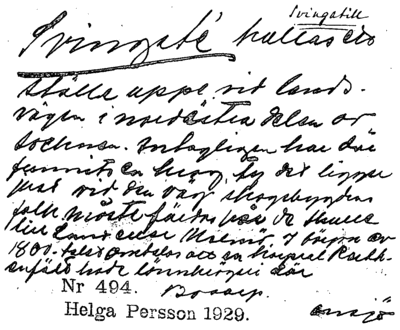 Svingatill
Svingaté kallas ett
ställe uppe vid lands-
vägen i nordöstra delen av
socknen. Antagligen har där
funnits en krog, ty det ligger
just vid den väg skogsbygdens
folk måste färdas när de skulle
till 1 början av
1800-talet omtalas att en
hade lönnkrögeri där
Nr 494.
Helga Persson 1929.